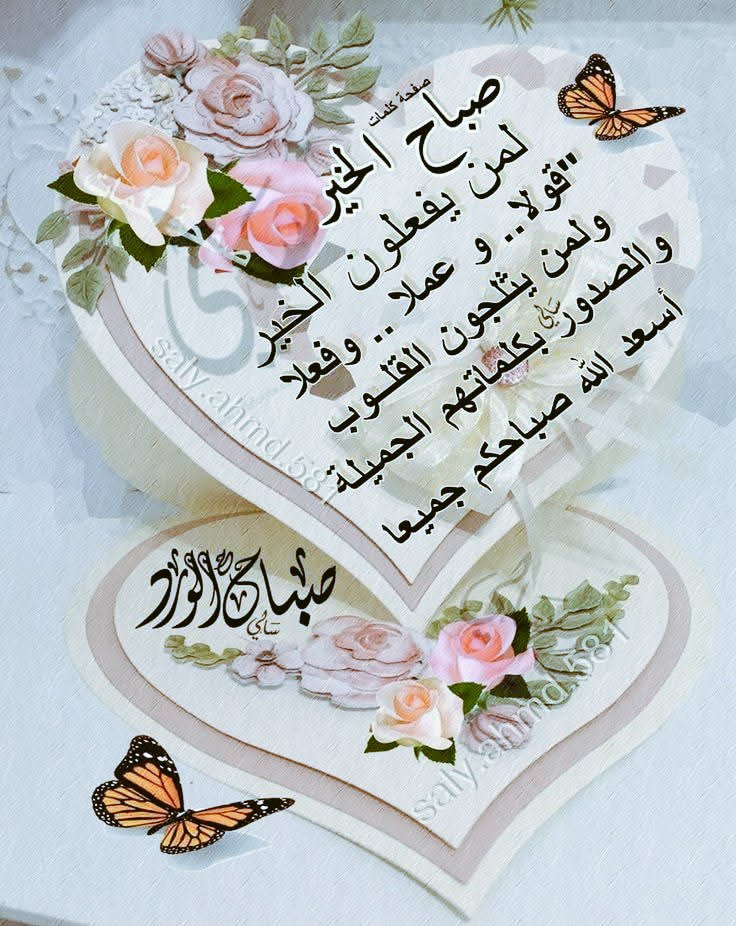 صفحة كلمات
صباح الخير
لمن يفعلون الخير
"قولا.. و عملا .. وفعلا
ولمن يثلجون القلوب
والصدور بكلماتهم الجميلة
سالي
أسعد الله صباحكم جميعا
saly.ahmd.581
صباح الورد
سالي
saly.ahmd.581